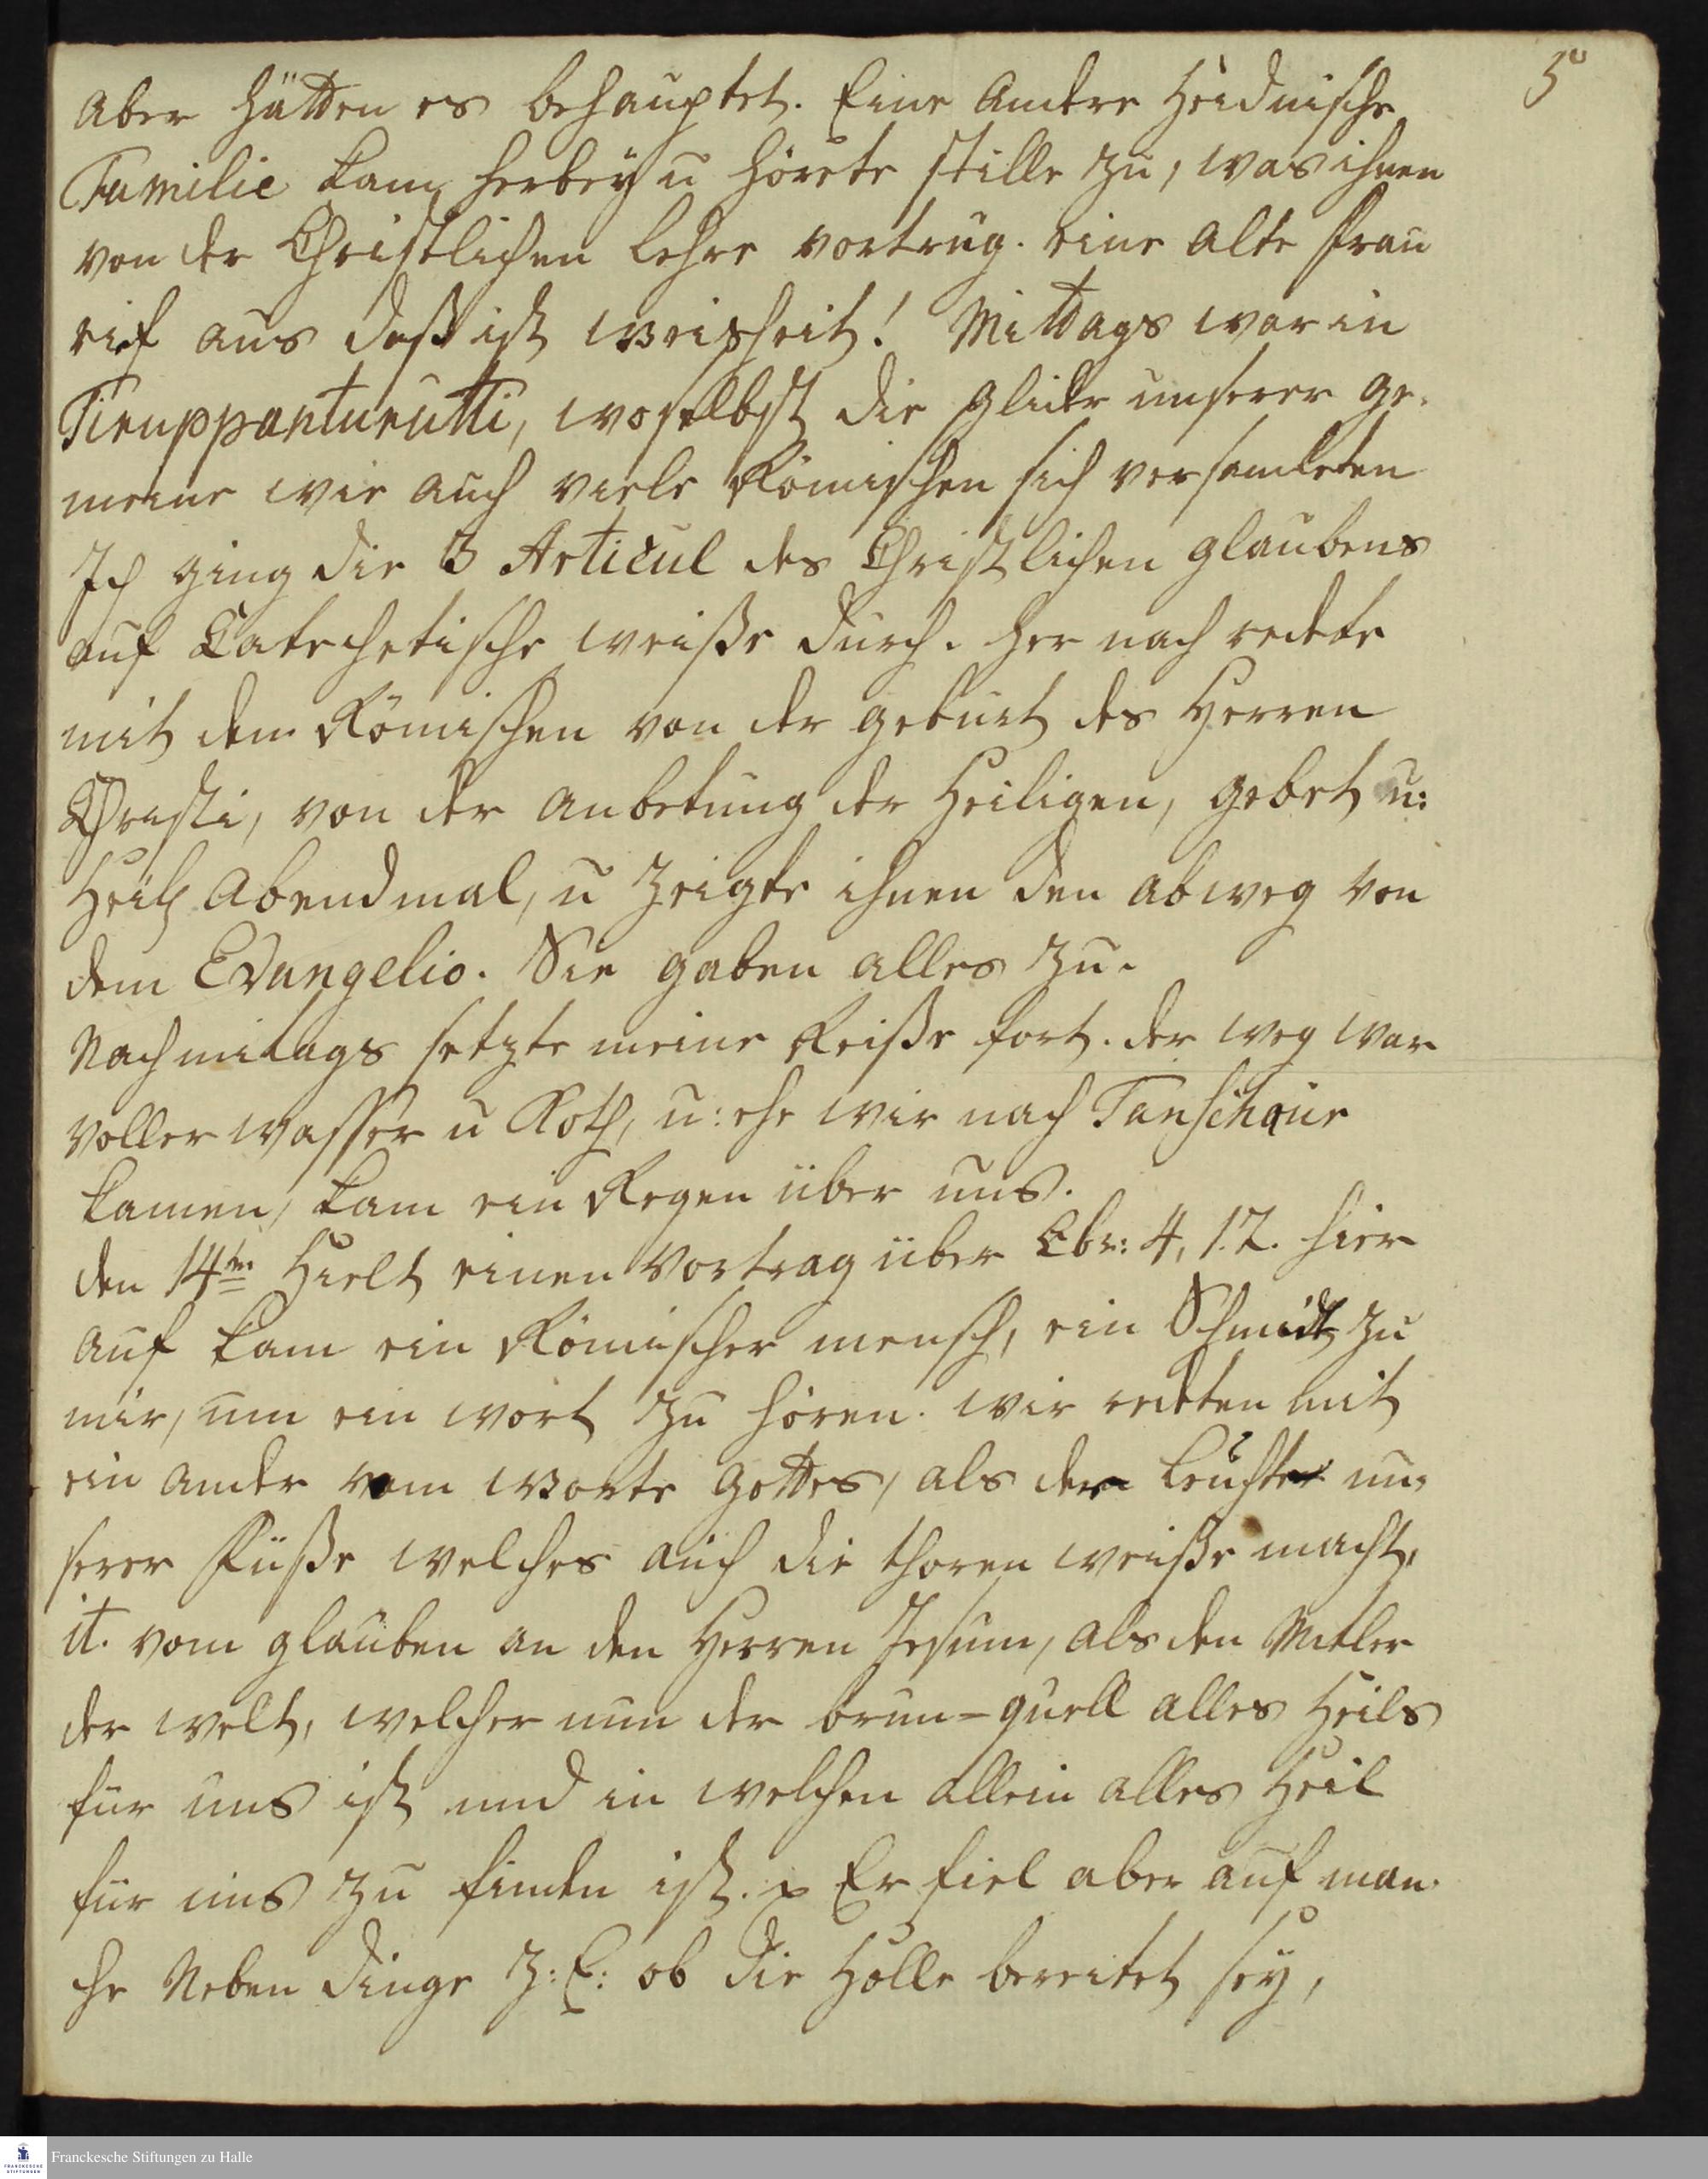 5
aber hätten es behauptet. Eine andere Heidnische
Familie kam herbey u hörete stille zu, was ihnen
von der Christlichen Lehre vortrug. eine alte Frau
rief aus daß ist weisheit! Mittags war in
Tiruppanturutti, woselbst die Glider unserer ge-
meine wie auch viele Römischen sich versamleten
Ich ging die 3 Articul des Christlichen glaubens
auf Catechetische weiße durch. her nach redete
mit den Römischen von der geburt des Herren
Christi, von der anbetung der Heiligen, gebet u:
Heil Abendmal, u zeigte ihnen den abweg von
dem Evangelio. Sie gaben alles zu.
Nachmitags setzte meine Reiße fort. der weg war
voller wasser u Koth, u: ehe wir nach Tanschaur
kamen, kam ein Regen über uns.
den 14ten Hielt einen Vortrag über Ebr: 4, 12. hier
auf kam ein Römischer mensch, ein Schmidt zu
mir, um ein wort zu hören. wir redeten mit
ein ander vom worte Gottes, als der Leuchter un-
serer Füße welches auch die thoren weiße macht,
it. vom glauben an den Herren Jesum, als den Mitler
der welt, welcher nun der brun-quell alles Heils
für uns ist und in welchen allein alles Heil
für uns zu finden ist. Er fiel aber auf man-
che Neben dinge z: E: ob die Hölle bereitet sey,
Franckesche Stiftungen zu Halle